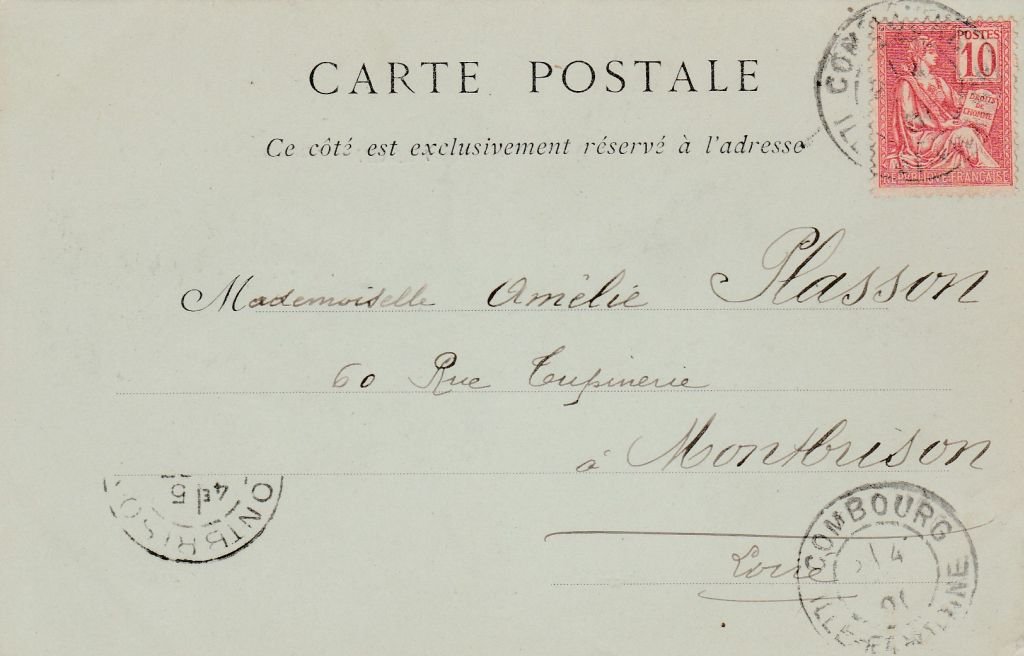 CARTE POSTALE
Ce côté est exclusivement réservé à l'adresse
POSTES
10
DROITS
DE
L'HOMME
REPUBLIQUE FRANÇAISE
Mademoiselle Amélie Plasson
60 Rue Tupinerie
à Montbrison
Loire
COMBOURG
4
01
ILLE-ET-VILAINE
MONTBRISON
4E
5